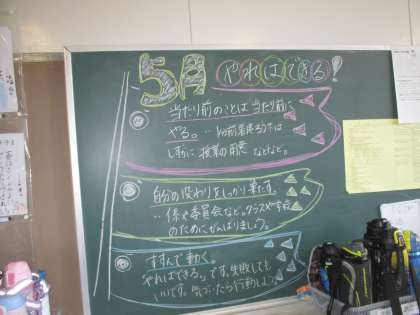 5月 やればできる!
当たり前のことは当たり前に
やる。…
しずかに 授業の用意 などなど。
自分の役わりをしっかり果たす。
…係や委員会など。クラスや学校
のためにがんばりましょう。
すすんで動く。
やればできるっです。失敗しても
いいです。気づいたら行動しよう。